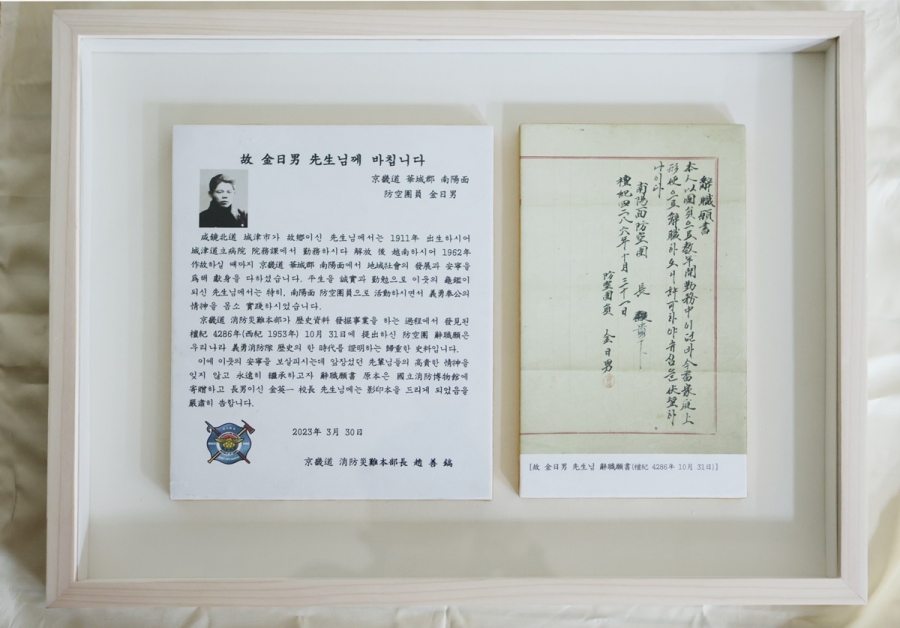 故 金日男 先生님께 바칩니다
京畿道 華城郡 南陽面
防空團員 金日男
咸鏡北道 城津市가 故鄕이신 先生님께서는 1911年 出生하시어
城津道立病院 院務課에서 勤務하시다 解放 後 越南하시어 1962年
作故하실 때까지 京畿道 華城郡 南陽面에서 地域社會의 發展과 安寧을
爲해 獻身을 다하셨습니다. 平生을 誠實과 勤勉으로 이웃의 龜鑑이
되신 先生님께서는 特히, 南陽面 防空團員으로 活動하시면서 義勇奉公의
情神을 몸소 實踐하시었습니다.
京畿道 消防災難本部가 歷史資料 發掘事業을 하는 過程에서 發見된
檀紀 4286年(西紀 1953年) 10月 31日에 提出하신 防空團 辭職願은
우리나라 義勇消防隊 歷史의 한 時代를 證明하는 歸重한 史料입니다.
이에 이웃의 安寧을 보살피시는데 앞장섰던 先輩님들의 高貴한 情神을
잊지 않고 永遠히 繼承하고자 辭職願書 原本은 國立消防博物館에
寄贈하고 長男이신 金英一 校長 先生님에는 影印本을 드리게 되었음을
嚴肅히 告합니다.
2023年 3月 30日
京畿道 消防災難本部長 趙 善 鎬
辭職願書
本人以團員으로 数年間 勤務中이온바 今番 家庭上
形便으로 辭職하오니 許可하야 주심을 伏望하
나이다
檀紀四二八六年十月三十一日
防空團員 金日男
南陽面防空團 長 殿
[故 金日男 先生님 辭職願書(檀紀 4286年 10月 31日)]